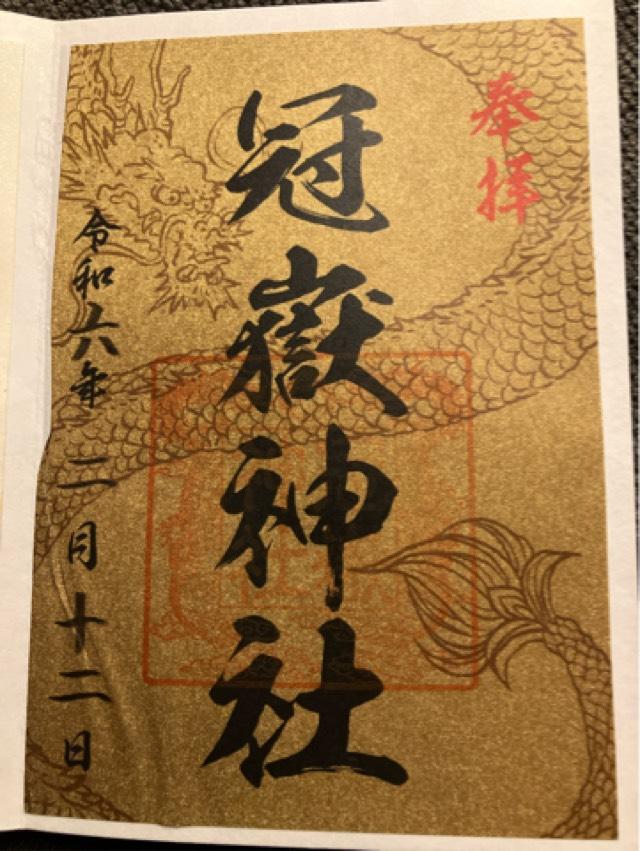 奉拝
冠嶽神社
令和六年 二月十二日